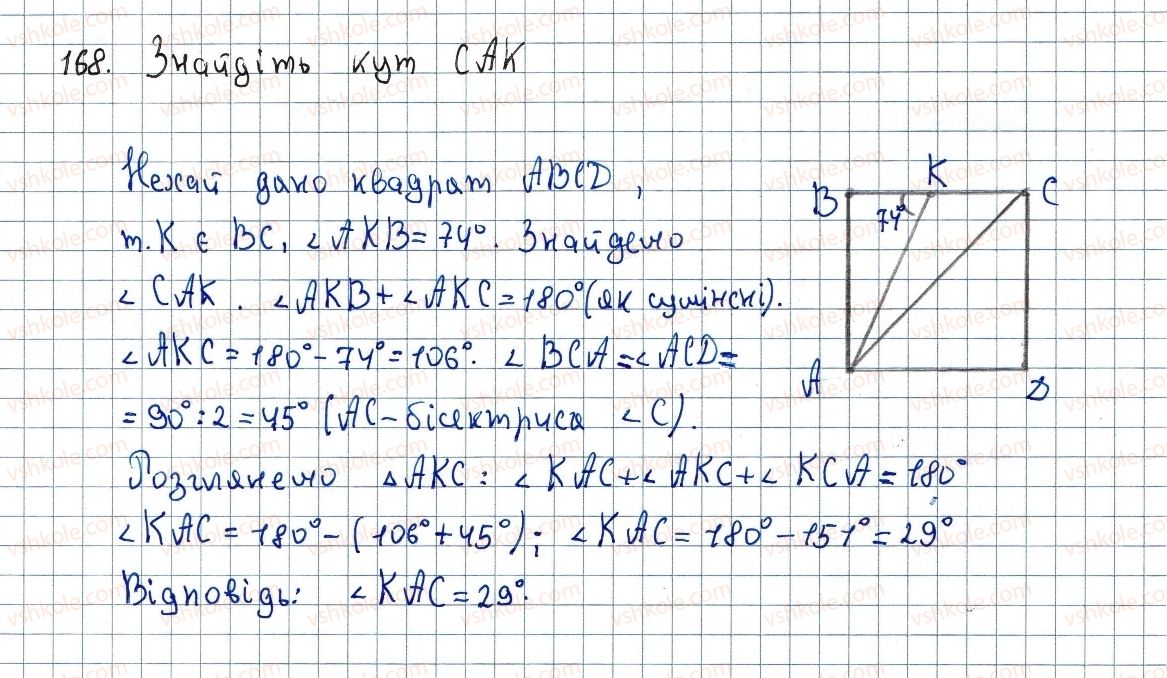 168. Знайдіть кут САК
Нехай дано квадрат ABCD,
т. К є ВС, ∠AKB = 74°. Знайдемо
∠ CAK. ∠AKB + ∠AKC = 180° (як суміжні).
∠AKC = 180° - 74° = 106°. ∠ BCA = ∠ACD =
= 90° : 2 = 45° (AC - бісектриса ∠C).
Розглянемо △ AKC: ∠ KAC + ∠ AKC + ∠ KCA = 180°
∠KAC = 180° - (106° + 45°); ∠KAC = 180° - 151° = 29°
Відповідь: ∠KAC = 29°.
B K C
74°
A D